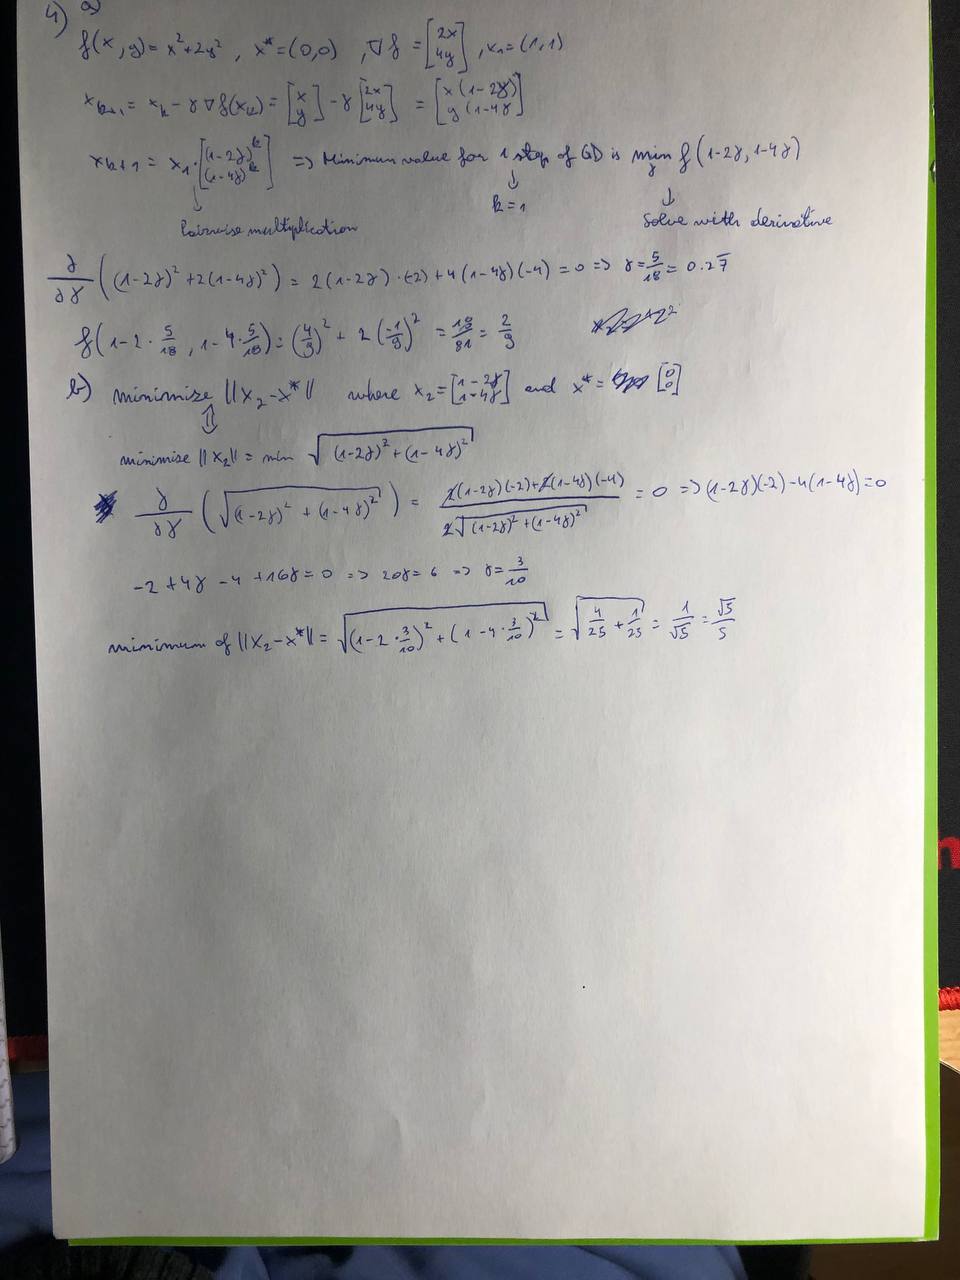 4) a)
f(x,y) = x² + 2y² , x* = (0,0) , ∇f = [2x 4y] , x₁ = (1,1)
x_{k+1} = x_k − γ∇f(x_k) = [x y] − γ [2x 4y] = [x(1−2γ) y(1−4γ)]
x_{k+1} = x₁ · [(1−2γ)^k (1−4γ)^k] => Minimum value for 1 step of GD is min_γ f(1−2γ, 1−4γ)
↓ k=1
↓ Pairwise multiplication
↓ Solve with derivative
∂/∂γ ((1−2γ)² + 2(1−4γ)²) = 2(1−2γ)·(−2) + 4(1−4γ)(−4) = 0 => γ = 5/18 = 0.27̅
f(1−2·5/18, 1−4·5/18) = (4/9)² + 2(−1/9)² = 18/81 = 2/9
b) minimise ||x₂−x*|| where x₂ = [1−2γ 1−4γ] and x* = [0 0]
⇕
minimise ||x₂|| = min √((1−2γ)² + (1−4γ)²)
∂/∂γ (√((1−2γ)² + (1−4γ)²)) = (2(1−2γ)(−2) + 2(1−4γ)(−4)) / (2√((1−2γ)² + (1−4γ)²)) = 0 => (1−2γ)(−2) − 4(1−4γ) = 0
−2 + 4γ − 4 + 16γ = 0 => 20γ = 6 => γ = 3/10
minimum of ||x₂−x*|| = √((1−2·3/10)² + (1−4·3/10)²) = √(4/25 + 1/25) = 1/√5 = √5/5